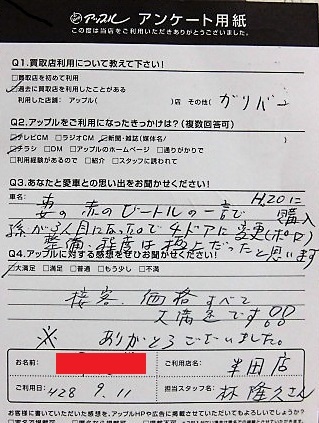 アップル アンケート用紙
この度は当店をご利用いただきありがとうございました。
Q1.買取店利用について教えて下さい!
□買取店を初めて利用
☑過去に買取店を利用したことがある
利用した店舗: アップル( )店 その他( ガリバー
Q2.アップルをご利用になったきっかけは?(複数回答可)
☑テレビCM □ラジオCM ☑新聞・雑誌(媒体名/ )
☑チラシ □DM □アップルのホームページ □通りがかりで
□利用経験があるので □紹介 □スタッフに誘われて
Q3.あなたと愛車との思い出をお聞かせください!
車名:
妻の赤のビートルの一言で H.20に購入
孫が3人目になったので4ドアに変更(ポロ)
整備・程度は極上だったと思います
Q4.アップルに対する感想をぜひお聞かせください!
☑大満足 □満足 □普通 □もう少し □不満
接客、価格すべて
大満足です!!
※ ありがとうございました。
お名前:
ご利用店名: 半田店
ご利用日: H28 9.11
担当スタッフ名: 林 隆久さん
お客様に書いていただいた感想を、アップルHPや広告に掲載させていただいてもよろしいでしょうか?